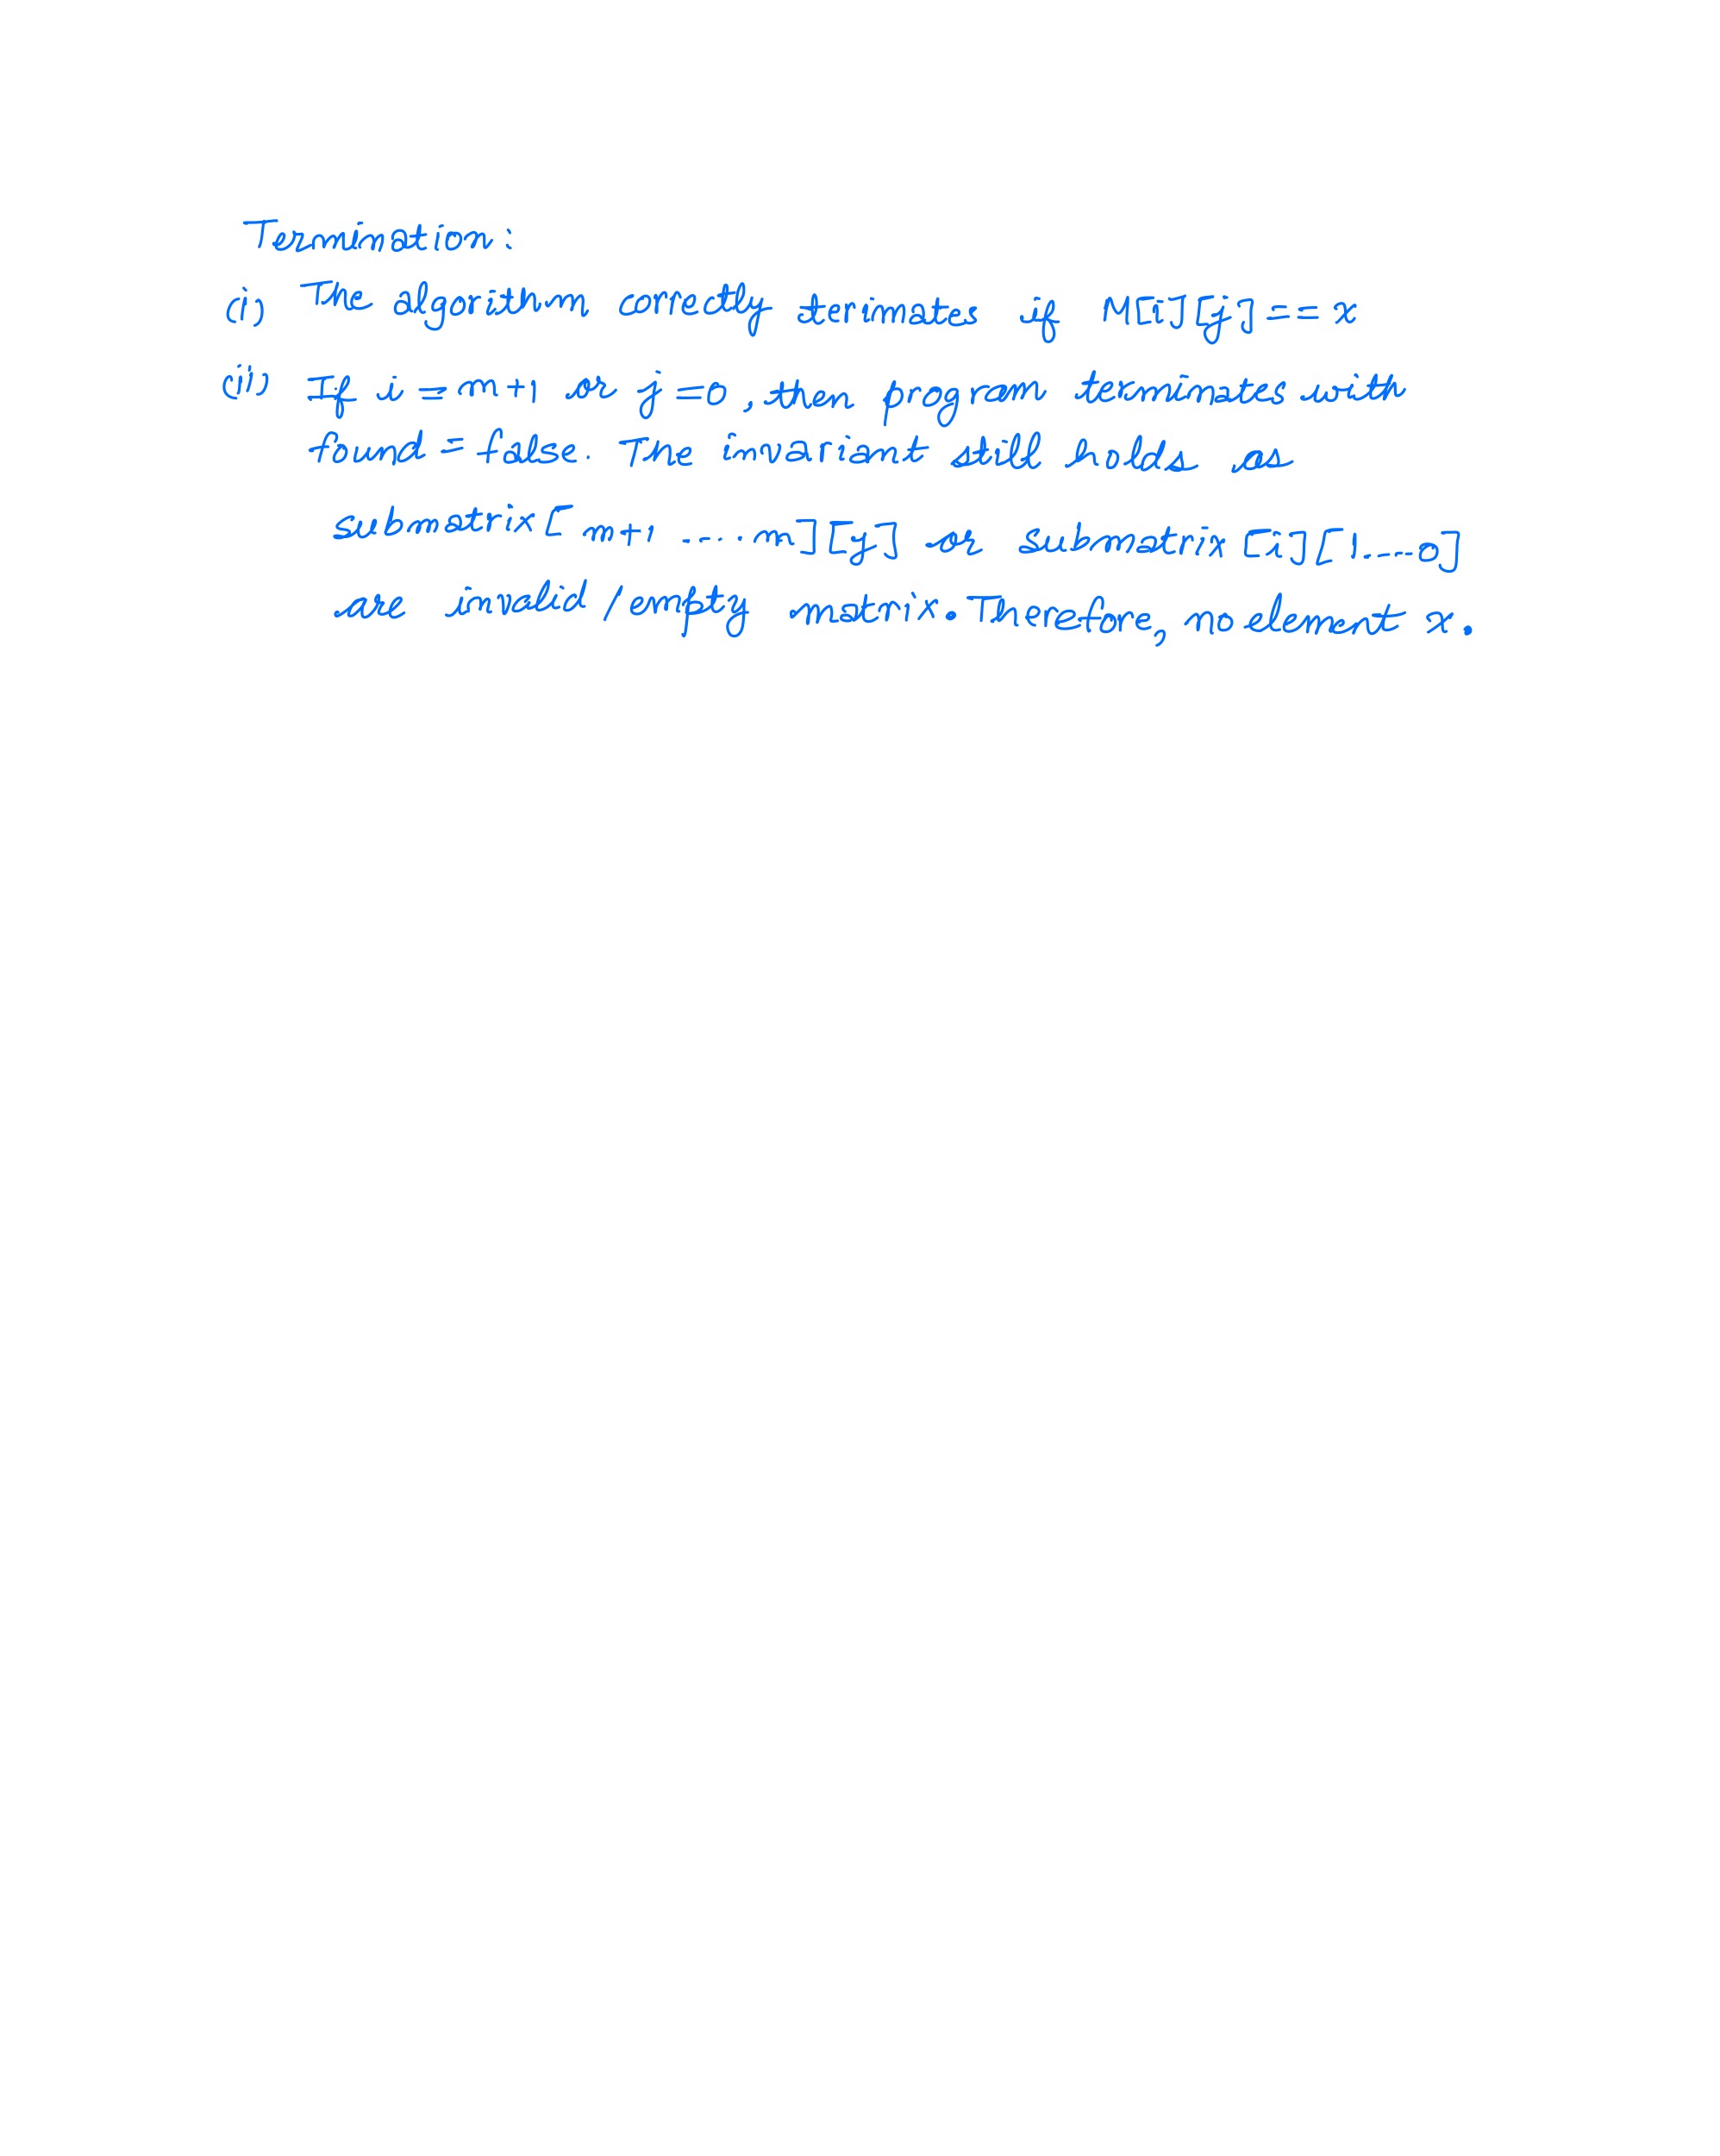 Termination:
(i) The algorithm correctly terimates if M[i][j] == x
(ii) If i = m+1 or j = 0, then program terminates with
found = false. The invariant still holds as
submatrix [ m+1 ..... m][j] or submatrix [i][1.....0]
are invalid / empty matrix. Therefore, no element x.